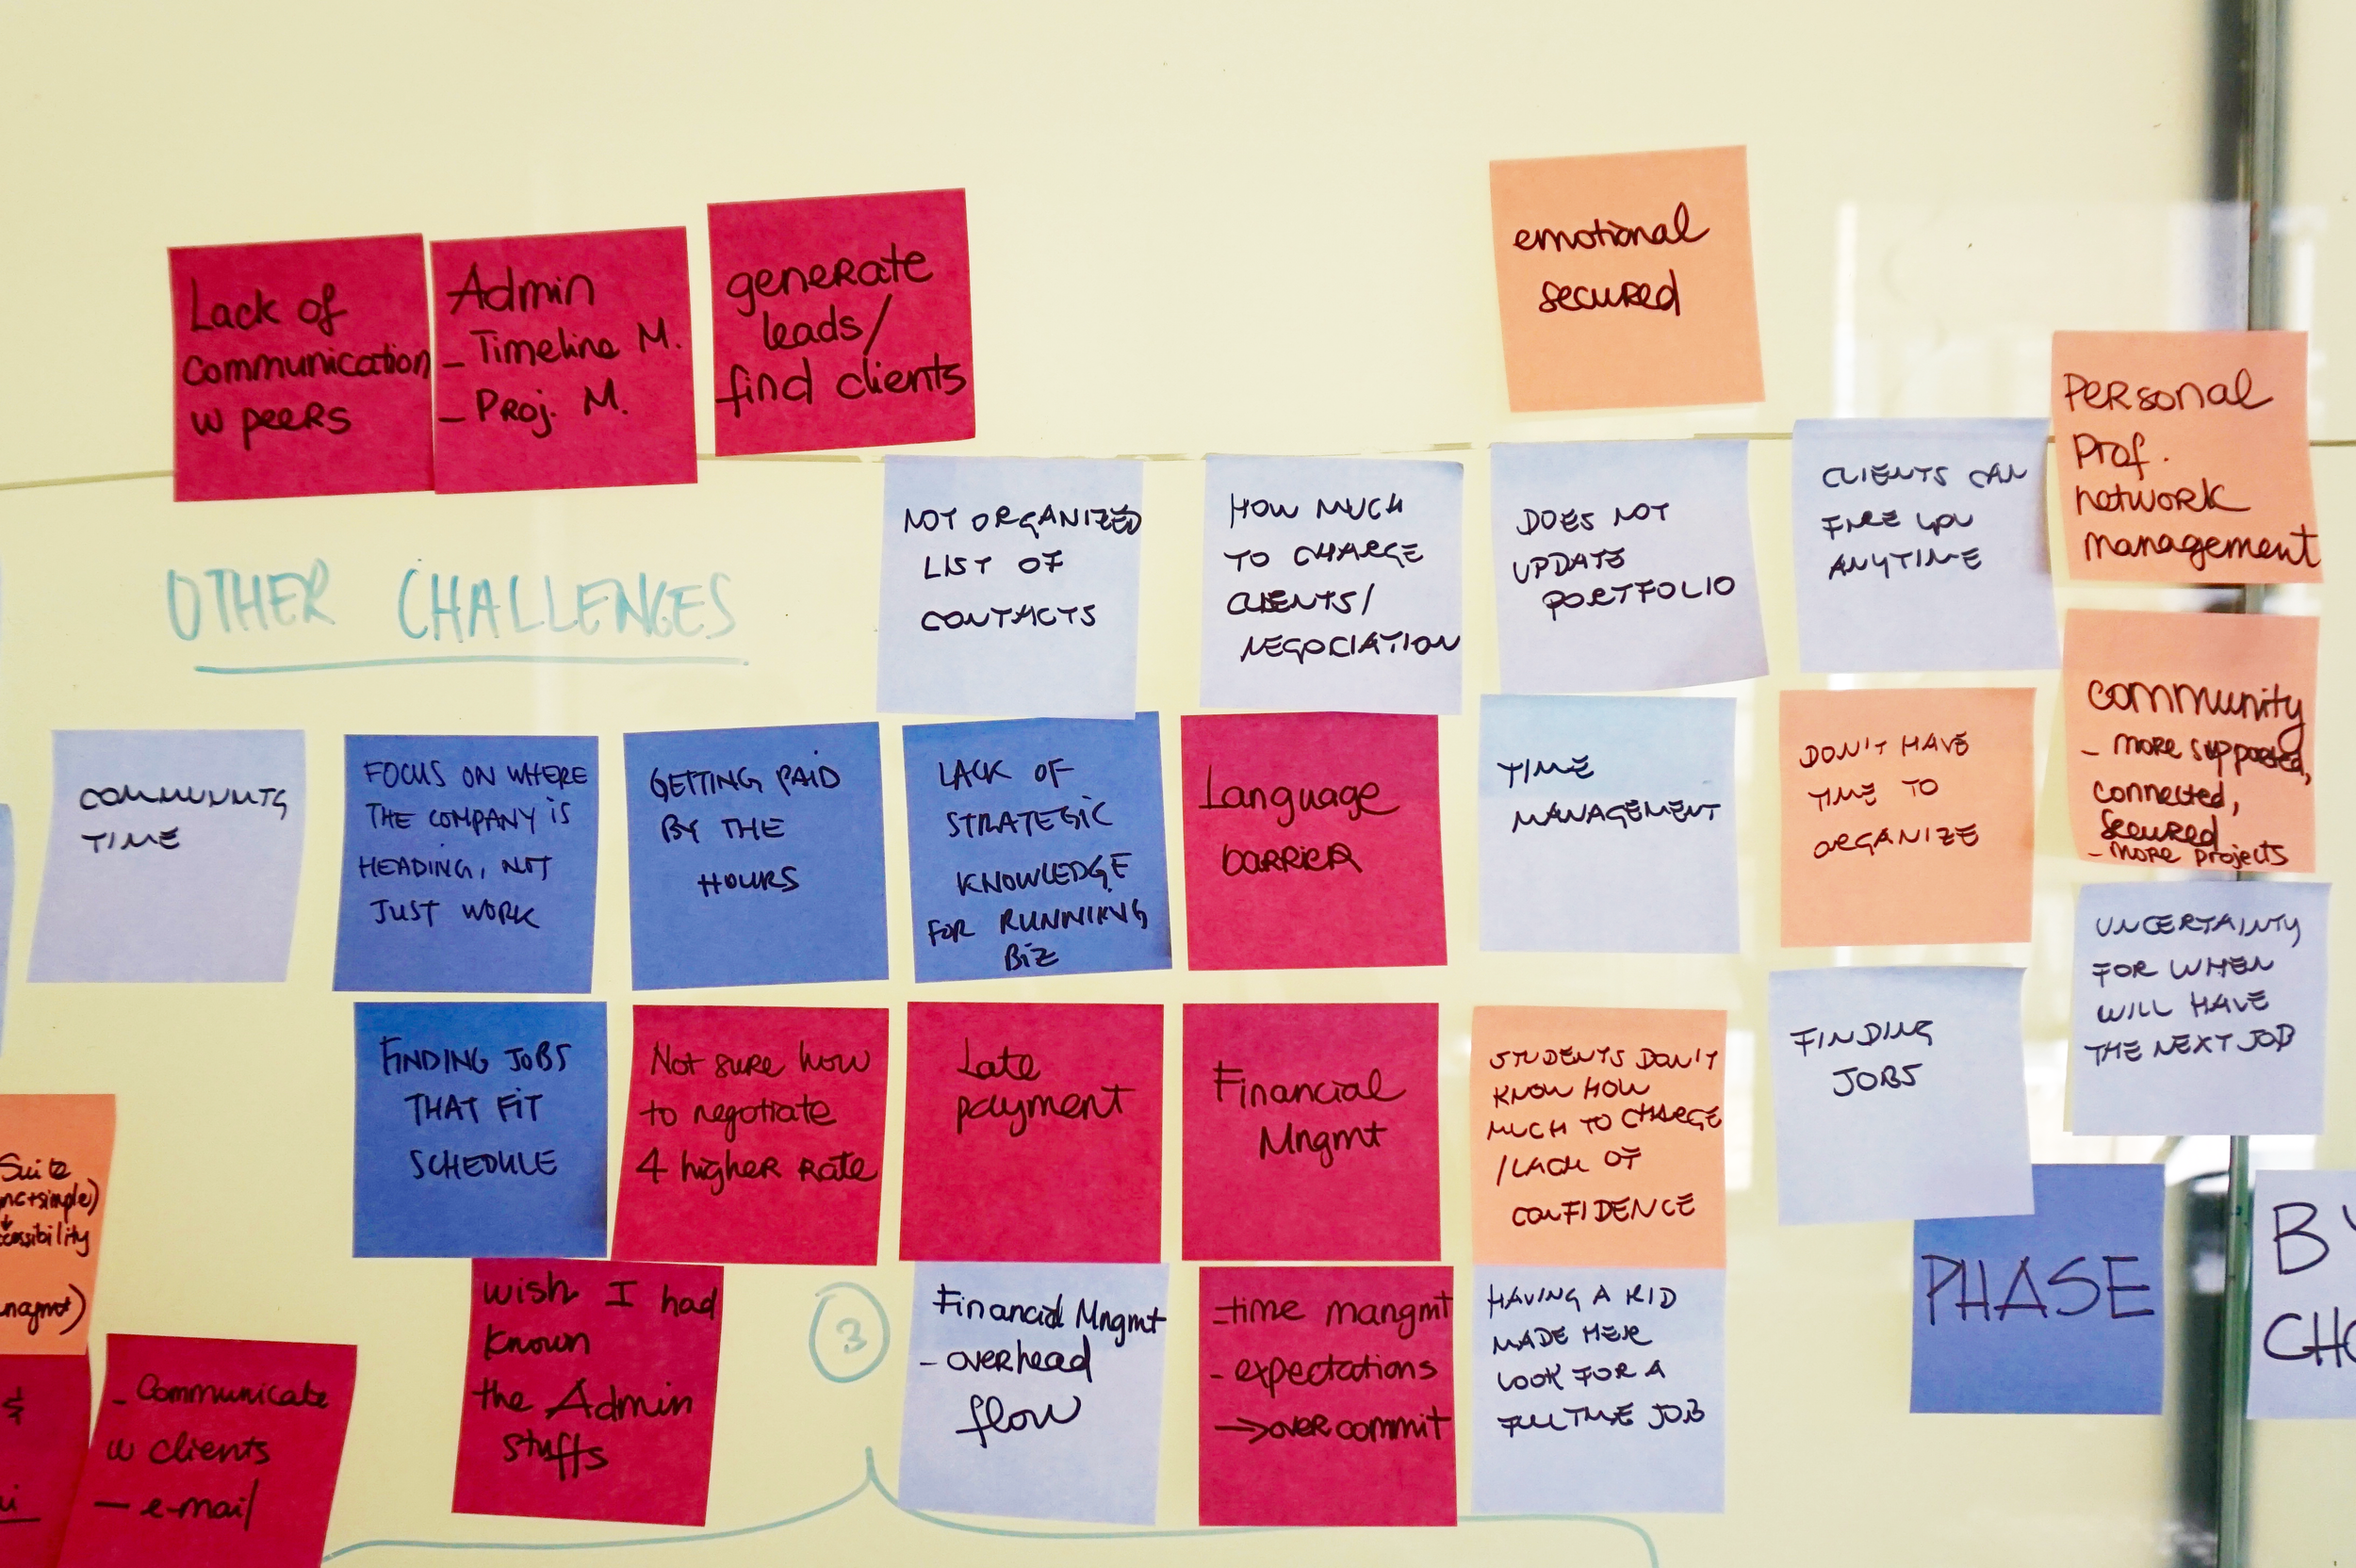 Lack of
communication
w peers
Admin
- Timeline M.
- Proj. M.
generate
leads/
find clients
emotional
secured
Personal
Prof.
network
management
OTHER CHALLENGES
NOT ORGANIZED
LIST OF
CONTACTS
HOW MUCH
TO CHARGE
CLIENTS/
NEGOCIATION
DOES NOT
UPDATE
PORTFOLIO
CLIENTS CAN
FIRE YOU
ANYTIME
community
- more supported,
connected,
secured
- more projects
TIME
FOCUS ON WHERE
THE COMPANY IS
HEADING, NOT
JUST WORK
GETTING PAID
BY THE
HOURS
LACK OF
STRATEGIC
KNOWLEDGE
FOR RUNNING
BIZ
Language
barrier
TIME
MANAGEMENT
DON'T HAVE
TIME TO
ORGANIZE
UNCERTAINTY
FOR WHEN
WILL HAVE
THE NEXT JOB
FINDING JOBS
THAT FIT
SCHEDULE
Not sure how
to negotiate
4 higher rate
Late
payment
Financial
Mngmt
STUDENTS DON'T
KNOW HOW
MUCH TO CHARGE
/LACK OF
CONFIDENCE
FINDING
JOBS
Suite
PHASE
B
wish I had
known
the Admin
stuffs
3
Financial Mngmt
- overhead
flow
- time mangmt
- expectations
→ over commit
HAVING A KID
MADE HER
LOOK FOR A
FULL TIME JOB
- Communicate
w clients
- e-mail